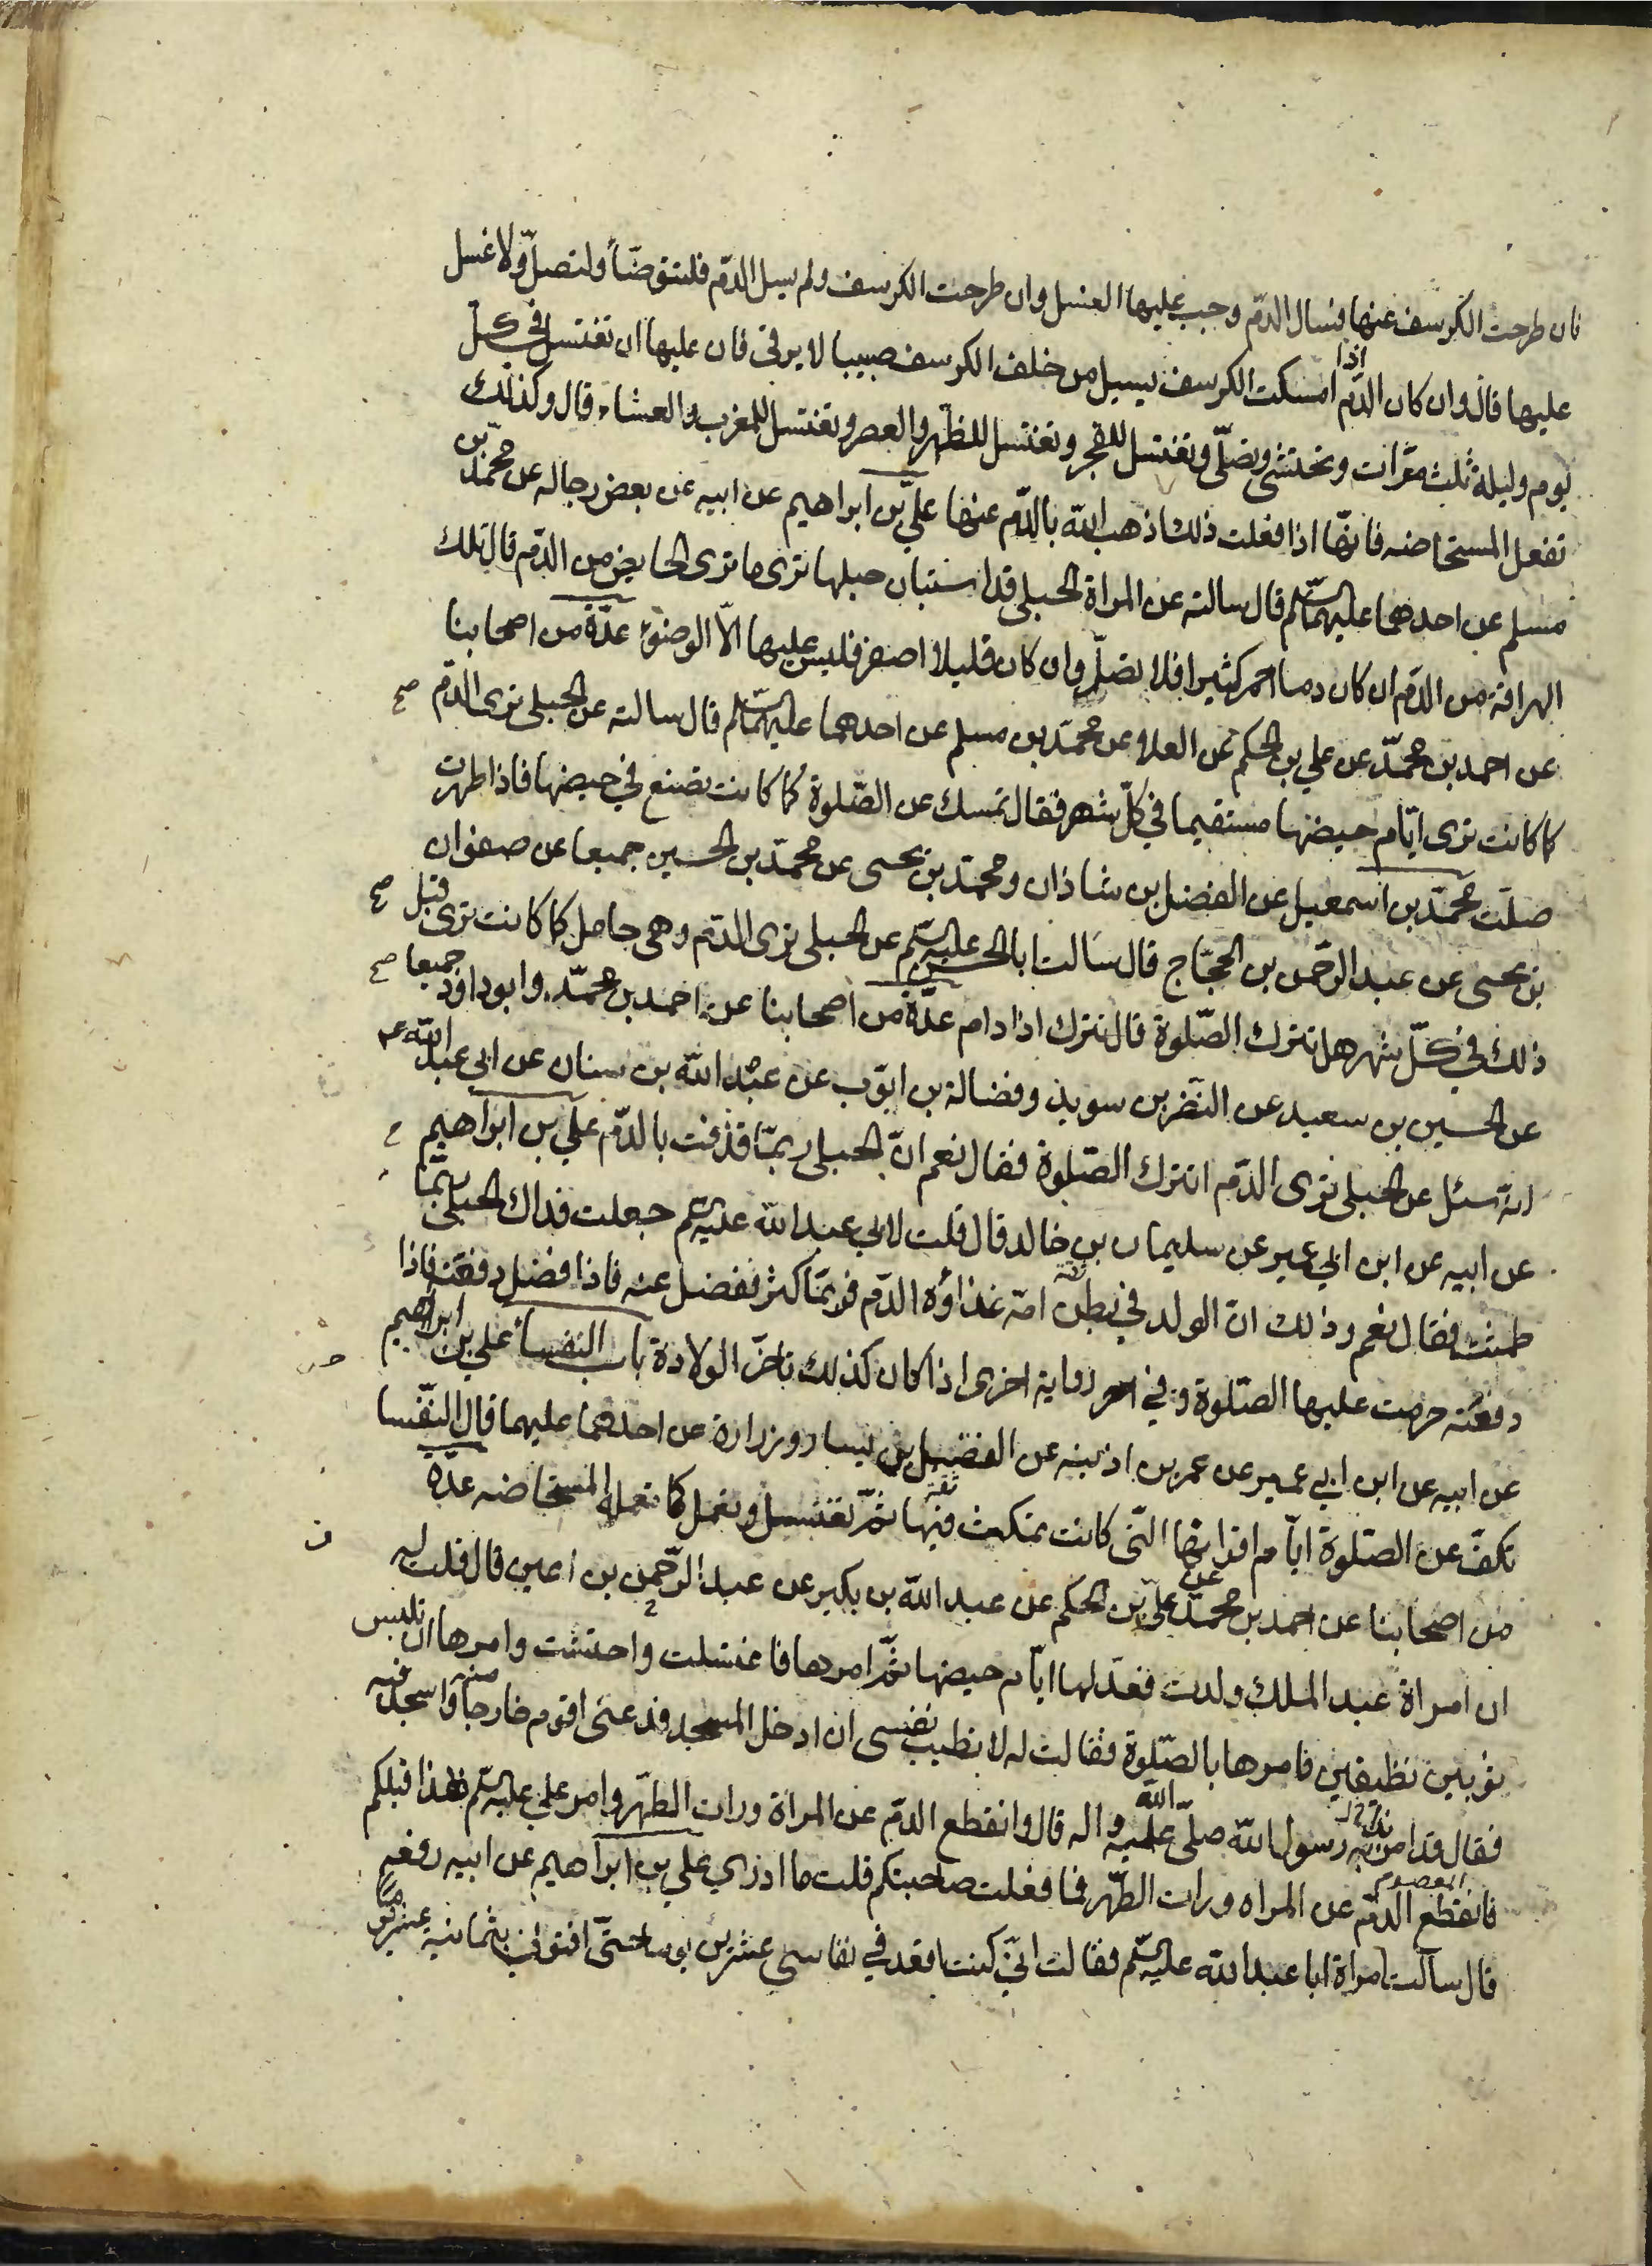 فان طرحت الكرسف عنها فسال الدّم وجب عليها الغسل وان طرحت الكرسف ولم يسل الدّم فلتتوضّأ ولتصلّ ولا غسل
عليها قال وان كان الدّم اذا امسكت الكرسف يسيل من خلف الكرسف صبيبا لا يرقى فان عليها ان تغتسل في كل
يوم وليلة ثلث مرّات وتحتشى وتصلّى وتغتسل للفجر وتغتسل للظهر والعصر وتغتسل للمغرب والعشاء قال وكذلك
تفعل المستحاضه فانها اذا فعلت ذلك اذهب الله بالدّم عنها علي بن ابراهيم عن ابيه عن بعض رجاله عن محمّد بن
مسلم عن احدهما عليهما السّلم قال سالته عن المراة الحبلى قد استبان حبلها ترى ما ترى الحايض من الدّم قال تلك
الهراقة من الدّم ان كان دما احمر كثيرا فلا تصلّ وان كان قليلا اصفر فليس عليها الّا الوضوء عدّة من اصحابنا
عن احمد بن محمّد عن علي بن الحكم عن العلا عن محمّد بن مسلم عن احدهما عليهما السّلم قال سالته عن الحبلى ترى الدّم
كما كانت ترى ايّام حيضها مستقيما في كلّ شهر فقال تمسك عن الصّلوة كما كانت تصنع في حيضها فاذا طهرت
صلّت محمّد بن اسمعيل عن الفضل بن شاذان ومحمّد بن يحيى عن محمّد بن الحسين جميعا عن صفوان
بن يحيى عن عبد الرّحمن بن الحجّاج قال سالت ابا الحسن عليه السّلم عن الحبلى ترى الدّم وهى حامل كما كانت ترى قبل
ذلك في كلّ شهر هل تترك الصّلوة قال تترك اذا دام عدّة من اصحابنا عن احمد بن محمّد وابو داود جميعا
عن الحسين بن سعيد عن النّضر بن سويد وفضالة بن ايّوب عن عبد الله بن سنان عن ابى عبد الله ع
انّه سئل عن الحبلى ترى الدّم اتترك الصّلوة فقال نعم انّ الحبلى ربّما قذفت بالدّم علي بن ابراهيم
عن ابيه عن ابن ابي عمير عن سليمان بن خالد قال قلت لابي عبد الله عليه السّلم جعلت فداك الحبلى ربّما
طمثت فقال نعم وذلك انّ الولد في بطن امّه غذاؤه الدّم فربّما كثر ففضل عنه فاذا فضل دفقته فاذا
دفقته حرمت عليها الصّلوة وفي رواية اخرى اذا كان كذلك تاخّر الولادة باب النفساء علي بن ابراهيم
عن ابيه عن ابن ابي عمير عن عمر بن اذينه عن الفضيل بن يسار وزرارة عن احدهما عليهما قال النّفسا
تكفّ عن الصّلوة ايّام اقرائها الّتى كانت تمكث فيها ثمّ تغتسل وتعمل كما تعمل المستحاضه عدّة
من اصحابنا عن احمد بن محمّد عن علي بن الحكم عن عبد الله بن بكير عن عبد الرّحمن بن اعين قال قلت له
ان امراة عبد الملك ولدت فعدّ لها ايّام حيضها ثمّ امرها فاغتسلت واحتشت وامرها ان تلبس
ثوبين نظيفين فامرها بالصّلوة فقالت له لا تطيب نفسى ان ادخل المسجد فدعنى اقوم خارجا منه واسجد فيه
فقال قد امر به رسول الله صلّى الله عليه واله قال وانقطع الدّم عن المراة ورات الطّهر وامر علي عليه السّلم بهذا قبلكم
فانقطع الدّم عن المراه ورات الطّهر فما فعلت صاحبتكم قلت ما ادري علي بن ابراهيم عن ابيه رفعه
قال سالت امراة ابا عبد الله عليه السّلم فقالت انّي كنت اقعد في نفاسى عشرين يوما حتّى افتوني بثمانية عشر يوما